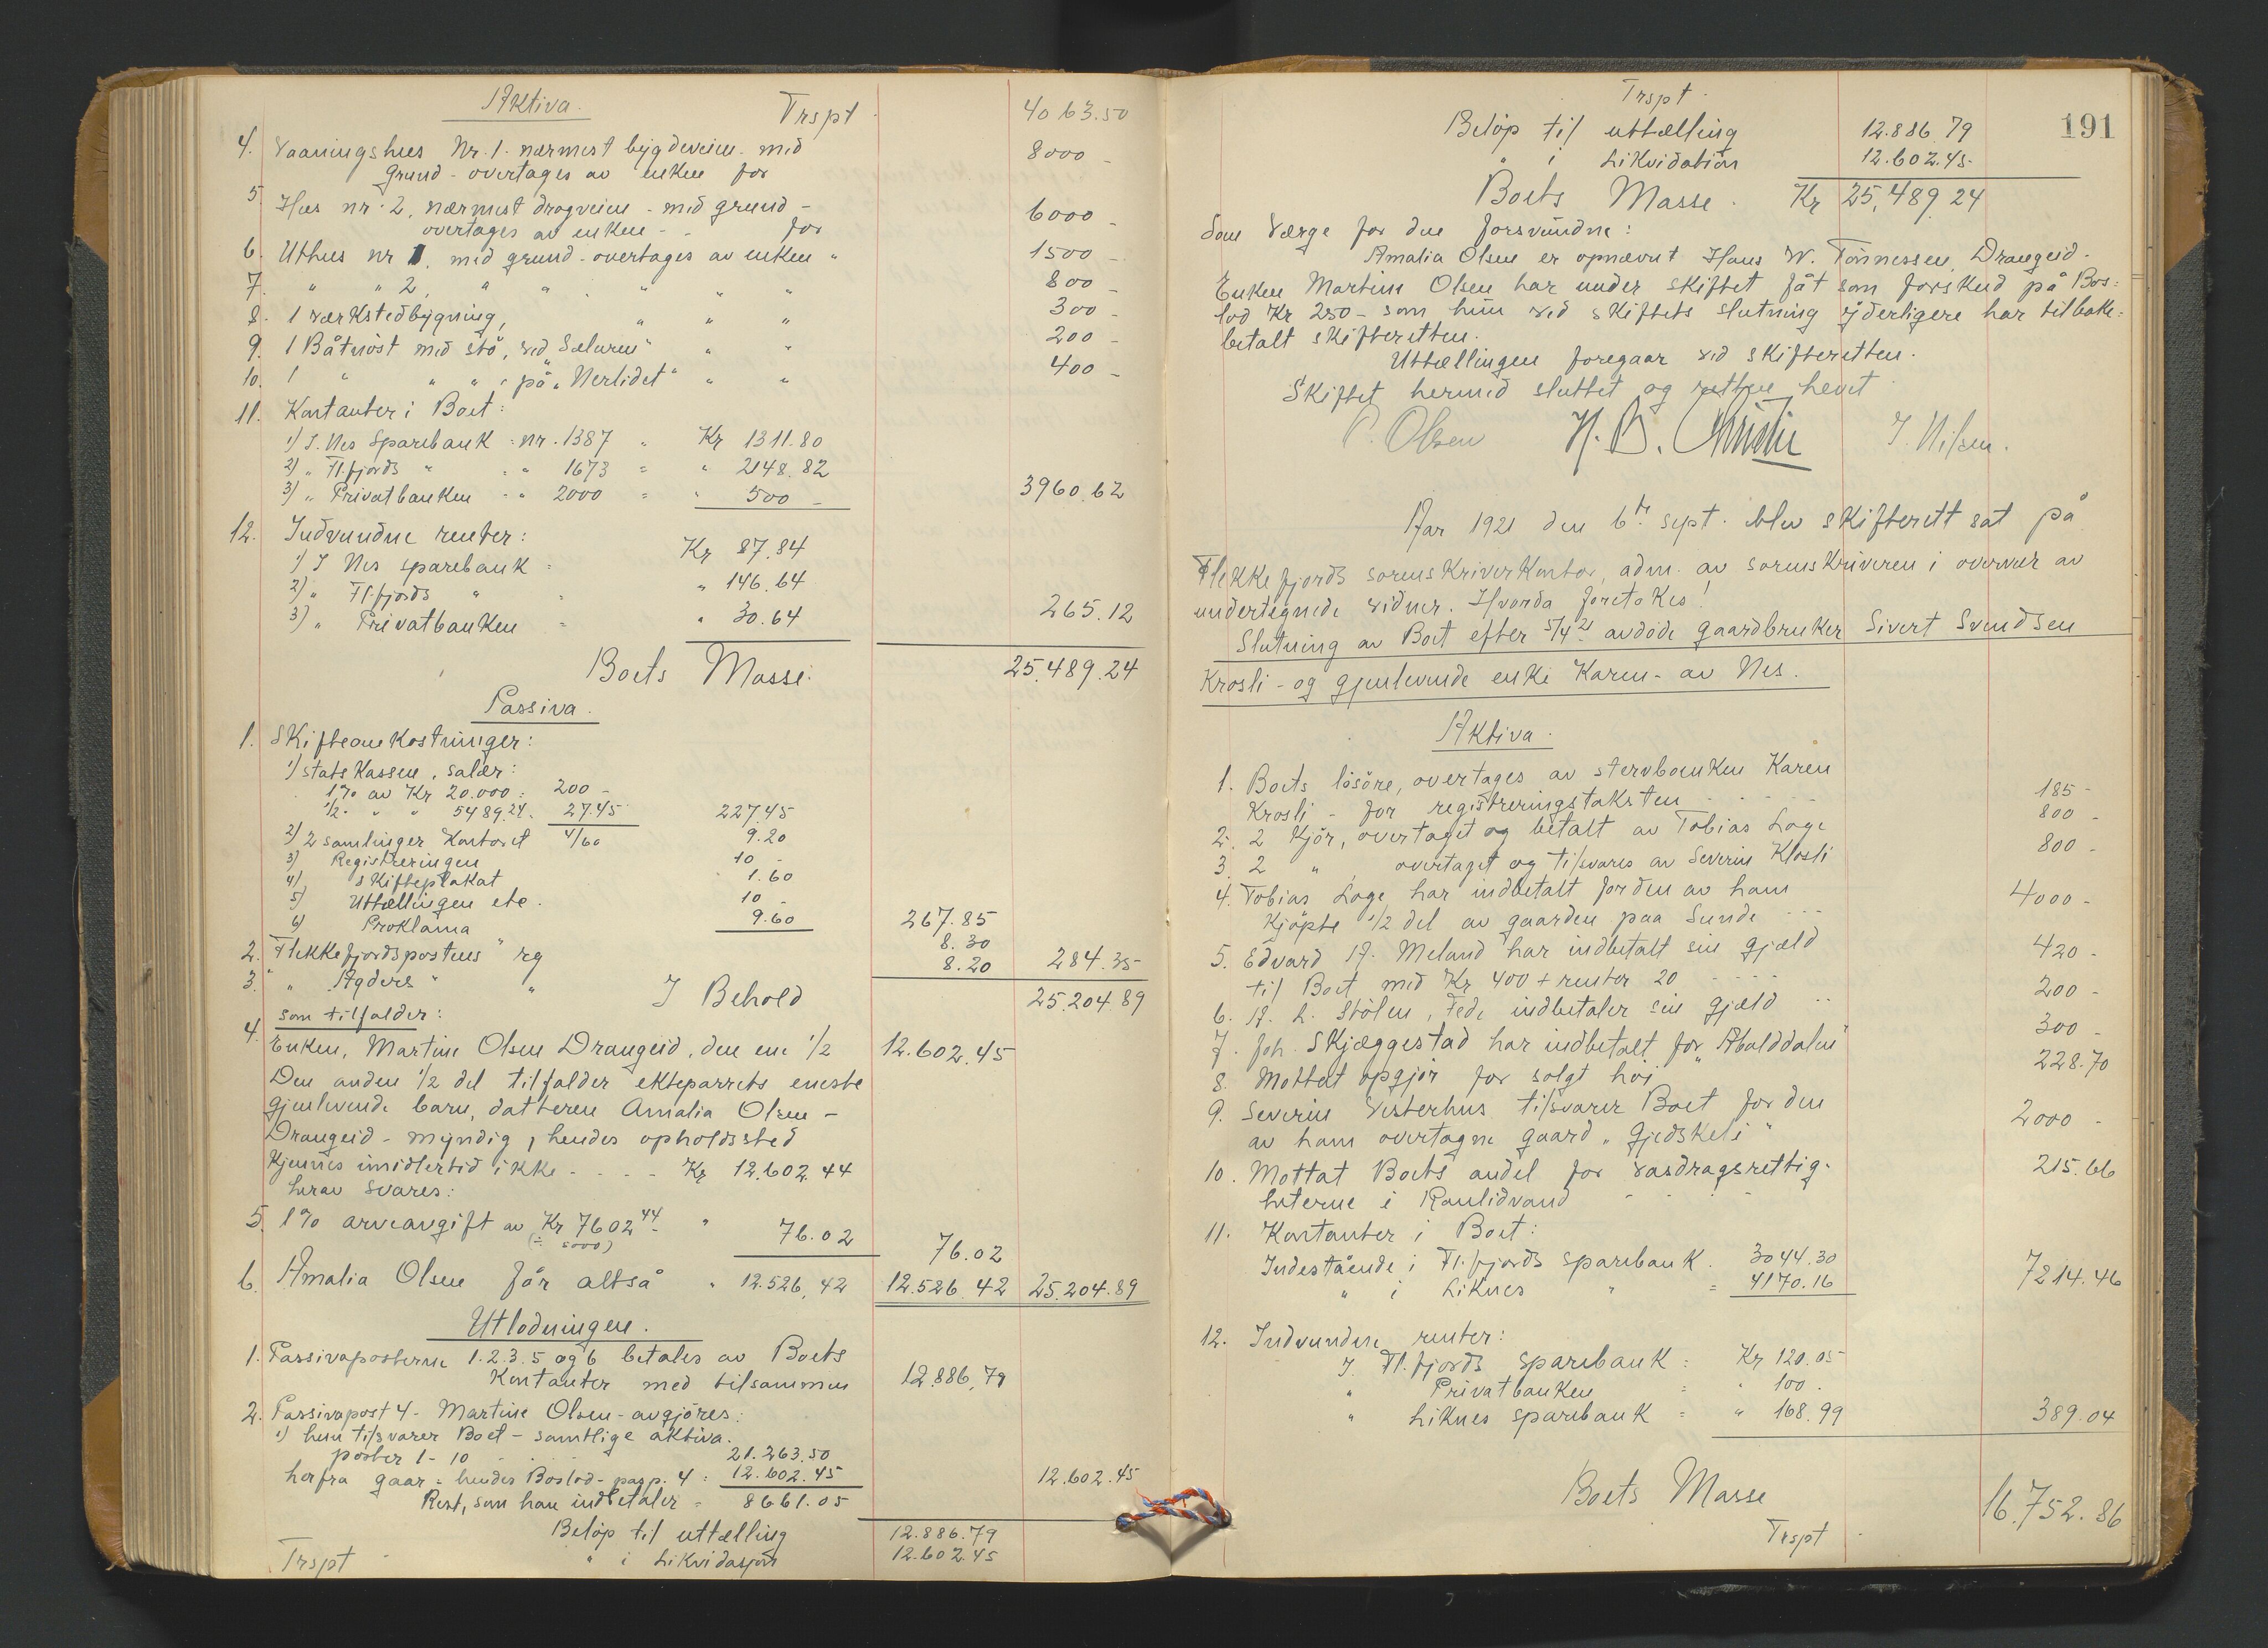 Aktiva. Trspt 4063.50
4. Vaaningshus Nr. 1. nærmest bygdeveien. med 8000 -
grund - overtages av enken for
5 Hus nr. 2, nærmest dragveien - med grund - 6000 -
overtages av enken - - for
6. Uthus nr 1. med grund - overtages av enken " 1500 -
7. " " 2, " " " " " 800 -
8. 1 værkstedbygning, " " " 300 -
9. 1 Båtnøst med stö, ved Sæluren" " " 200 -
10. 1 " " " " på „Nerlidet" " " 400 -
11. Kontanter i Boet:
1) I. Nes Sparebank = nr. 1387 " Kr 1311.80
2) " Fl.fjords " = " 1673 = " 2148.82
3) " Privatbanken - " 2000 = " 500 - 3960.62
12. Indvundne renter:
1) I Nes sparebank = Kr 87.84
2) " Fl.fjords " = " 146.64
3) " Privatbanken = " 30.64 265.12
Boets Masse. 25.489.24
Passiva.
1. Skifteomkostninger:
1) statskassen, salær:
1% av Kr 20.000 = 200 -
1/2 - " " 5489.24. 27.45 227.45
2) 2 samlinger Kontoret 4/60 9.20
3) Registreringen 10 -
4) Skifteplakat 1.60
5) Uttællingen etc. 10 -
6) Proklama 9.60 267.85
2. Flekkefjordspostens" rg 8.30
3. " Agders " " 8.20 284.35
I Behold 25.204.89
som tilfalder:
4. Enken, Martine Olsen Drangeid, den ene 1/2 12.602.45
Den anden 1/2 del tilfalder ekteparrets eneste
gjenlevende barn, datteren Amalia Olsen -
Drangeid - myndig, hendes opholdssted
kjennes imidlertid ikke - - - - Kr 12.602.44
herav svares:
5. 1% arveavgift av Kr 7602 44 " 76.02 76.02
(÷ 5000)
6. Amalia Olsen får altså " 12.526,42 12.526.42 25.204.89
Utlodningen.
1. Passivaposterne 1.2.3.5 og 6 betales av Boets
Kontanter med tilsammen 12.886,79
2. Passivapost 4 - Martine Olsen - avgjöres:
1) hun tilsvarer Boet - samtlige aktiva.
poster 1 - 10 21.263.50
herfra gaar = hendes Boslod - pasp. 4 = 12.602.45 12.602.45
Rest, som han indbetaler = 8661.05
Belöp til uttælling 12.886.79
Trspt " i Likvidasjon 12.602.45
191
Trspt.
Belöp til uttælling 12.886.79
" i Likvidation 12.602.45-
Boets Masse. Kr 25,489.24
Som Værge for den forsvundne:
Amalia Olsen er opnævnt Hans W. Tönnessen Drangeid.
Enken Martine Olsen har under skiftet fåt som forskud på Bos=
lod Kr 250 - som hun ved skiftets slutning yderligere har tilbake=
betalt skifteretten.
Uttællingen foregaar ved skifteretten.
Skiftet hermed sluttet og retten hevet
P. Olsen H. B. Christie J. Nilsen.
Aar 1921 den 6te sept. blev skifterett sat på
Flekkefjords sorenskriverkontor, adm. av sorenskriveren i overvær av
undertegnede vidner. Hvorda foretokes!
Slutning av Boet efter 5/4 21 avdöde gaardbruker Sivert Svendsen
Krosli - og gjenlevende enke Karen - av Nes.
Aktiva.
1. Boets lösöre, overtages av stervboenken Karen
Krosli - for registreringstaksten - - - - 185 -
2. 2 Kjör, overtaget og betalt av Tobias Loge 800 -
3. 2 " overtaget og tilsvares av Severin Klosli 800 -
4. Tobias Loge har indbetalt for den av ham
kjöpte 1/2 del av gaarden paa Sunde - - - 4000 -
5. Edvard A. Meland har indbetalt sin gjæld
til Boet med Kr 400 + renter 20 - - - - 420 -
6. A. L. Stölen, Fede indbetaler sin gjæld - - 200 -
7. Joh. Skjæggestad har indbetalt for „Abalddalen" 300 -
8. Mottat opgjör for solgt höi 228.70
9. Severin Vesterhus tilsvarer Boet for den
av ham overtagne gaard „Gjedskeli" 2000 -
10. Mottat Boets andel for vasdragsrettig-
heterne i Ranlidvand - - - 215.66
11. Kontanter i Boet:
Indestående i Fl.fjords sparebank. 3044.30
" i Liknes " = 4170.16 7214.46
12. Indvundne renter:
I. Fl.fjords sparebank = Kr 120.05
" Privatbanken = " 100.
" Liknes sparebank = " 168.99 389.04
Boets Masse 16.752.86
Trspt